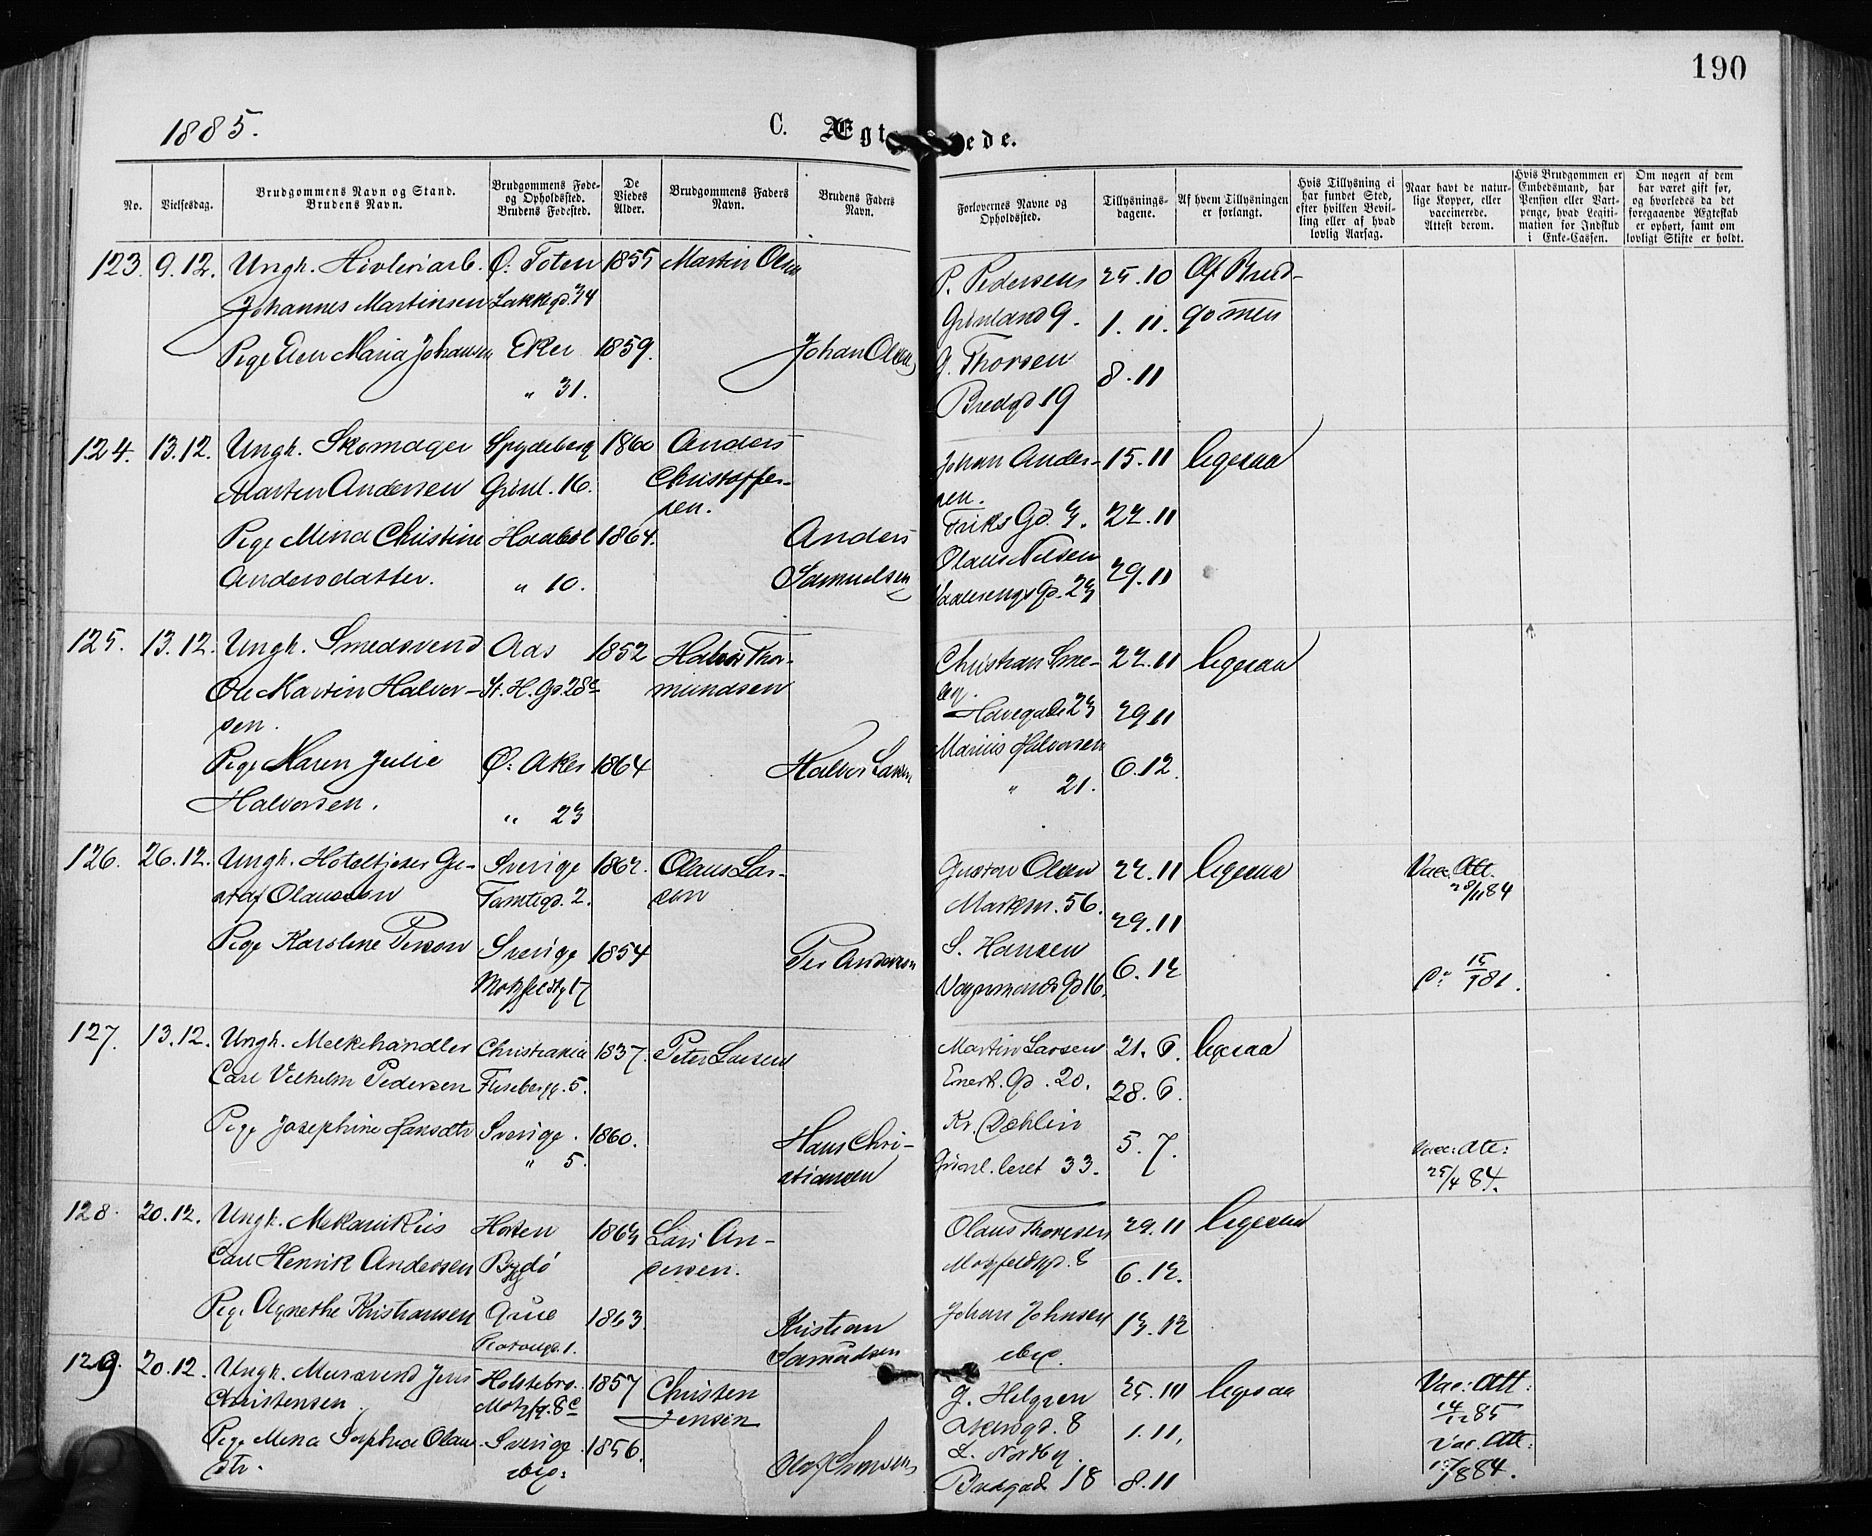 190
1885.
C. Ægt ede.
No.
Vielsesdag.
Brudgommens Navn og Stand.
Brudens Navn.
Brudgommens Føde-
og Opholdssted.
Brudens Fødested.
De
Viedes
Alder.
Brudgommens Faders
Navn.
Brudens Faders
Navn.
Forlovernes Navne og
Opholdssted.
Tillysnings-
dagene.
Af hvem Tillysningen
er forlangt.
Hvis Tillysning ei
har fundet Sted,
efter hvilken Bevil-
ling eller af hvad
lovlig Aarsag.
Naar havt de natur-
lige Kopper, eller
vaccinerede.
Attest derom.
Hvis Brudgommen er
Embedsmand, har
Pension eller Vart-
penge, hvad Legiti-
mation for Indskud
i Enke-Cassen.
Om nogen af dem
har været gift før,
og hvorledes da det
foregaaende Ægteskab
er ophørt, samt om
lovligt Skifte er holdt.
123. 9.12. Ungk. Høvleriarb. Ø. Toten 1855 Martin Olsen P. Pedersen 25.10 Af Brud-
Johannes Martinsen Lakkgd. 34 Grønland 9. 1.11. gommen
Pige Elen Maria Johansen Eker 1859. Johan Olsen G. Thorsen 8.11
" 31. Bredgd 19
124. 13.12. Ungk. Skomager Spydeberg 1860 Anders Johan Ander- 15.11 ligesaa
Martin Andersen Grønl. 16. Christoffer- sen.
sen. Gd. 3. 22.11
Pige Mina Christine Haabøl 1864. Anders Olaus Nilsen
Andersdatter. " 10. Samuelsen Vaalerengs Gd. 23 29.11
125. 13.12. Ungk. Smedsvend Aas 1852 Halvor Thor- Christian Sme- 22.11 ligesaa
Ole Martin Halvor- St. H. Gd. 28c mundsen
sen. Havegade 23 29.11
Pige Maren Julie Ø. Aker 1864 Halvor Larsen Marius Halvorsen 6.12.
Halvorsen. " 23 " 21.
126. 26.12. Ungk. Hoteltjener Gu- Sverige 1862. Olaus Lar- Gustav Olsen 22.11 ligesaa Vac. Att.
staf Olausson Tomtegd. 2. son Markv. 56. 28/11 84
29.11
Pige Karoline Person Sverige 1854 Per Anderson S. Hansen
Motzfeldtg 17 Vognmands Gd 16. 6.12 Do 15/7 81.
127. 13.12. Ungk. Melkehandler Christiania 1837. Peter Larsen Martin Larsen 21.6. ligesaa
Carl Vilhelm Pedersen Fliseberg. 5. Enerh. Gd. 20. 28.6.
Pige Josephine Hansdtr Sverige. 1860. Hans Chri- Kr. Dæhlin 5.7. Vac: Att:
" 5. stiansen Grønl. leret 33. 25/4 84.
128. 20.12. Ungk. Mekanikus Horten 1863 Lars An- Olaus Thoresen 29.11 ligesaa
Carl Henrik Andersen Bygdø dersen. Motzfeldtgd. 8 6.12.
Pige Agnethe Kristiansen Grue 1863 Kristian Johan Johnsen 13.12
1. Samuelsen ibid.
129. 20.12. Ungk. Mursvend Jens Holstebro. 1857 Christen J. Helgren 25.10 ligesaa Vac: Att:
Christensen. Motzfg. 8c Jensen Akersgd. 8 1.11. 14/12 85
Pige Mina Sophie Olaus- Sverige 1856. L. Norby. Vac. Att:
dtr. ibid: Olaf Bredgade 18 8.11 84.